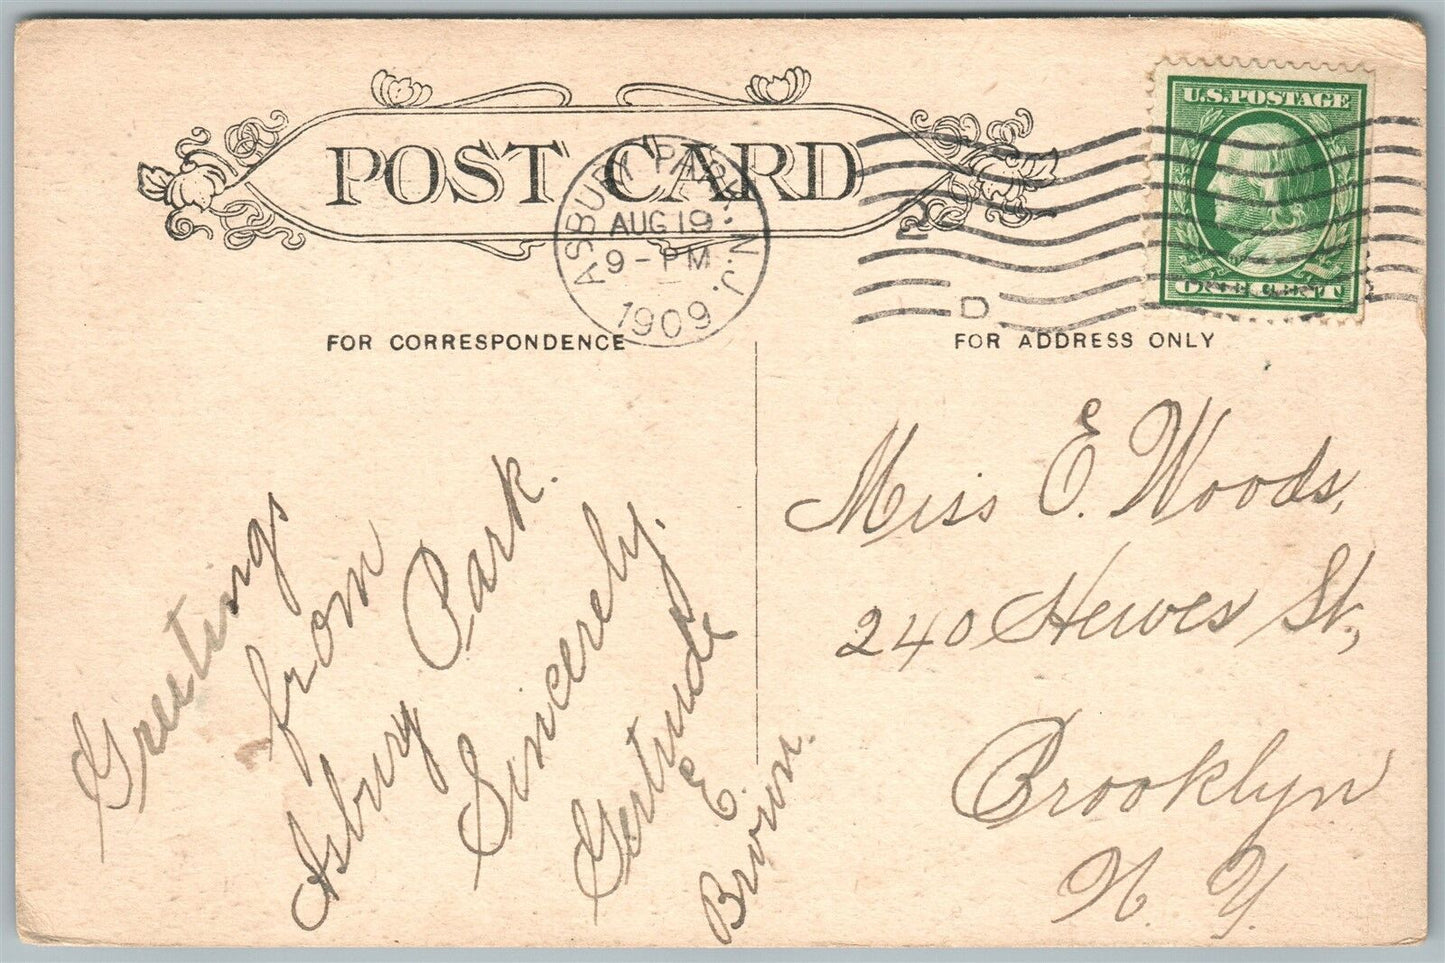 POST CARD
ASBURY PARK, N.J.
AUG 19
9-PM
1909
D
U.S.POSTAGE
ONE CENT
FOR CORRESPONDENCE
FOR ADDRESS ONLY
Greetings
from
Asbury Park.
Sincerely.
Gertrude
E.
Brown.
Miss E. Woods,
240 Hewes St.,
Brooklyn
N. Y.